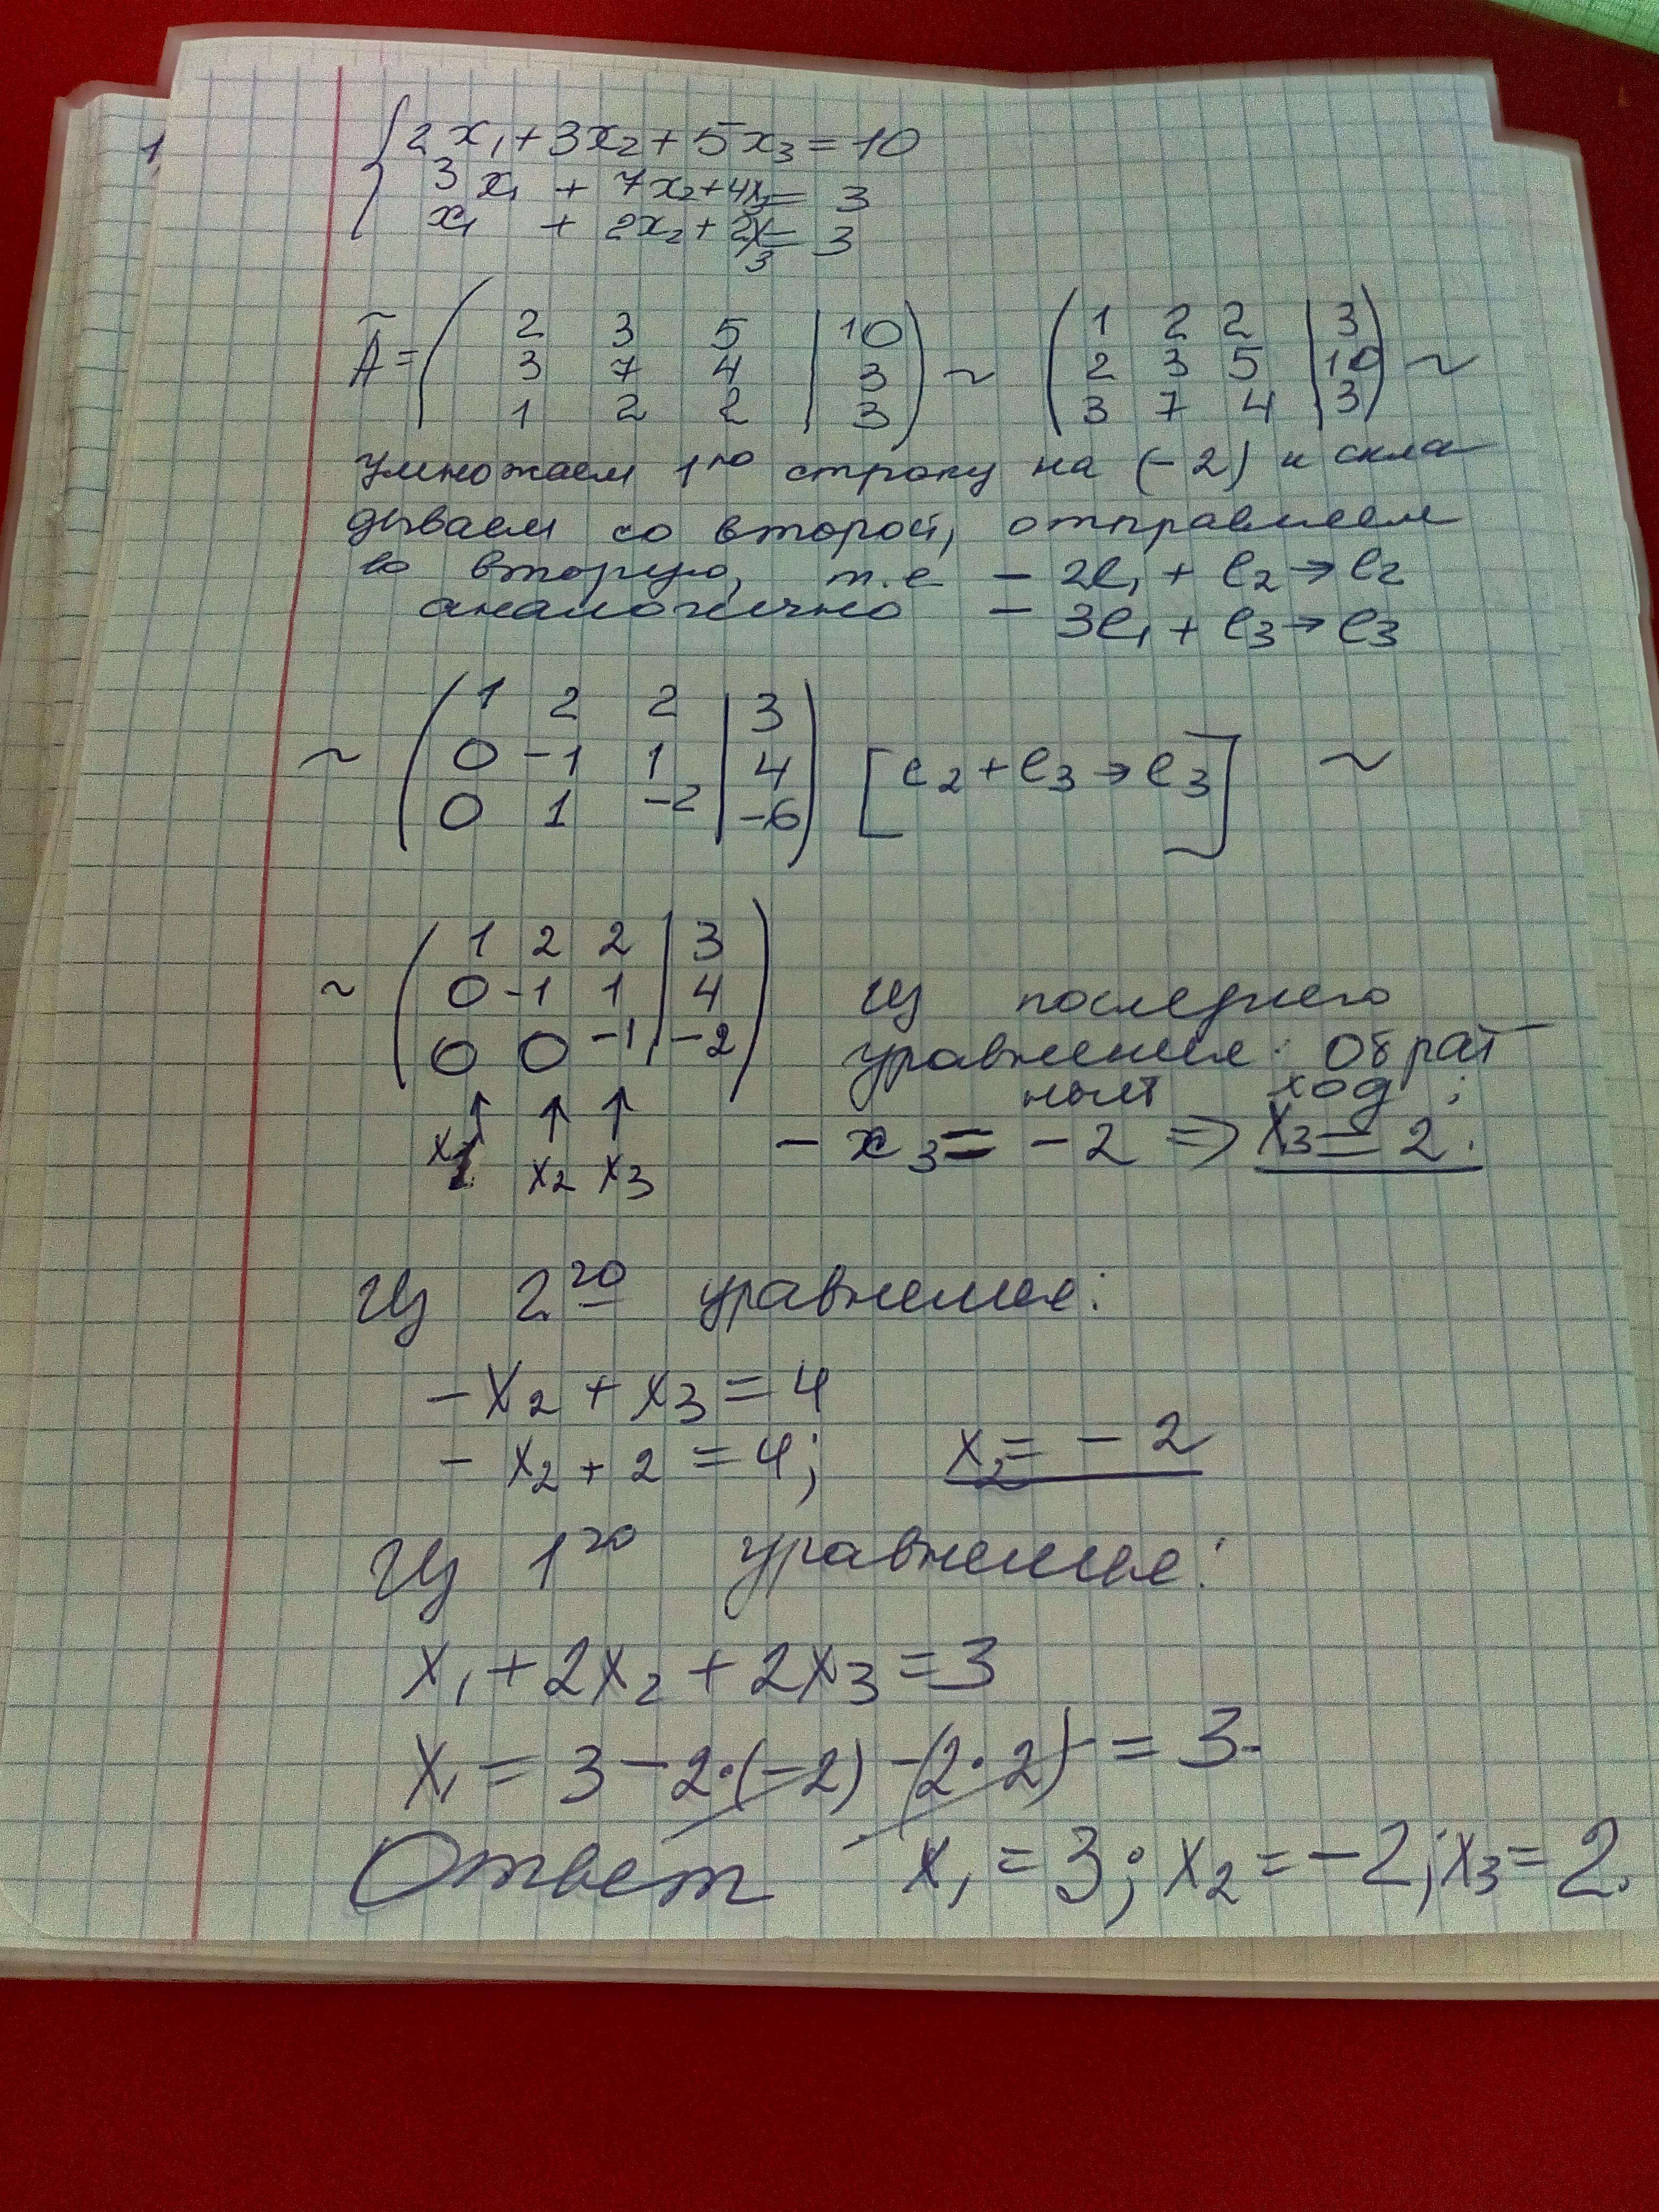 1
2x₁ + 3x₂ + 5x₃ = 10
3x₁ + 7x₂ + 4x₃ = 3
x₁ + 2x₂ + 2x₃ = 3
Ã = ( 2 3 5 | 10 ) ~ ( 1 2 2 | 3 ) ~
( 3 7 4 | 3 ) ( 2 3 5 | 10 )
( 1 2 2 | 3 ) ( 3 7 4 | 3 )
умножаем 1ую строку на (-2) и скла
дываем со второй, отправляем
во вторую, т.е - 2l₁ + l₂ → l₂
аналогично - 3l₁ + l₃ → l₃
~ ( 1 2 2 | 3 )
( 0 -1 1 | 4 ) [l₂ + l₃ → l₃] ~
( 0 1 -2 | -6 )
~ ( 1 2 2 | 3 )
( 0 -1 1 | 4 ) Из последнего
( 0 0 -1 | -2 ) уравнения: Обрат
↑ ↑ ↑ ный ход ;
x₁ x₂ x₃ - x₃ = - 2 ⇒ x₃ = 2.
Из 2го уравнения:
- x₂ + x₃ = 4
- x₂ + 2 = 4; x₂ = - 2
Из 1го уравнения:
x₁ + 2x₂ + 2x₃ = 3
x₁ = 3 - 2·(-2) - (2·2) = 3.
Ответ x₁ = 3; x₂ = -2; x₃ = 2.